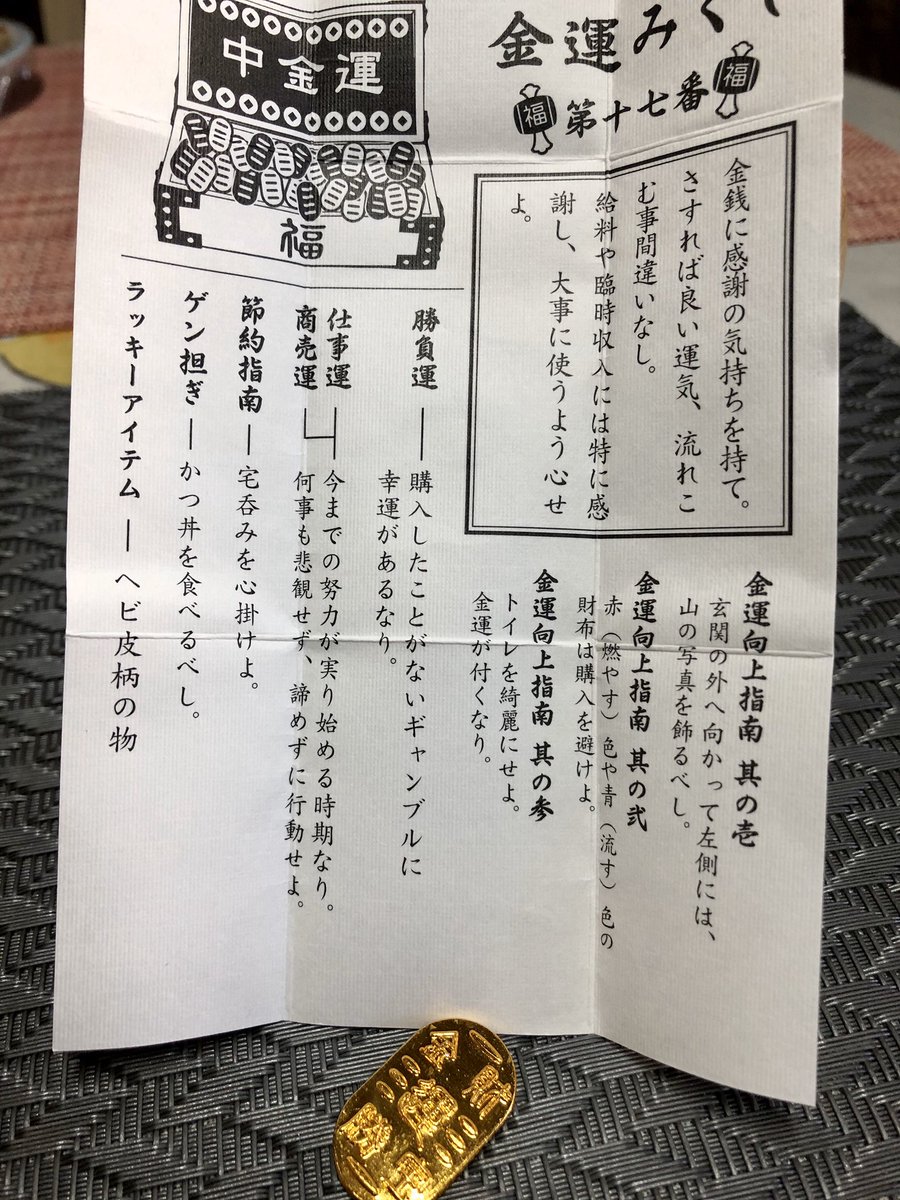 金運みくじ
福
第十七番
福
中金運
福
金銭に感謝の気持ちを持て。
さすれば良い運気、流れこ
む事間違いなし。
給料や臨時収入には特に感
謝し、大事に使うよう心せ
よ。
金運向上指南 其の壱
玄関の外へ向かって左側には、
山の写真を飾るべし。
金運向上指南 其の弐
赤（燃やす）色や青（流す）色の
財布は購入を避けよ。
金運向上指南 其の参
トイレを綺麗にせよ。
金運が付くなり。
勝負運―購入したことがないギャンブルに
幸運があるなり。
仕事運
商売運
今までの努力が実り始める時期なり。
何事も悲観せず、諦めずに行動せよ。
節約指南―宅呑みを心掛けよ。
ゲン担ぎ―かつ丼を食べるべし。
ラッキーアイテム―ヘビ皮柄の物